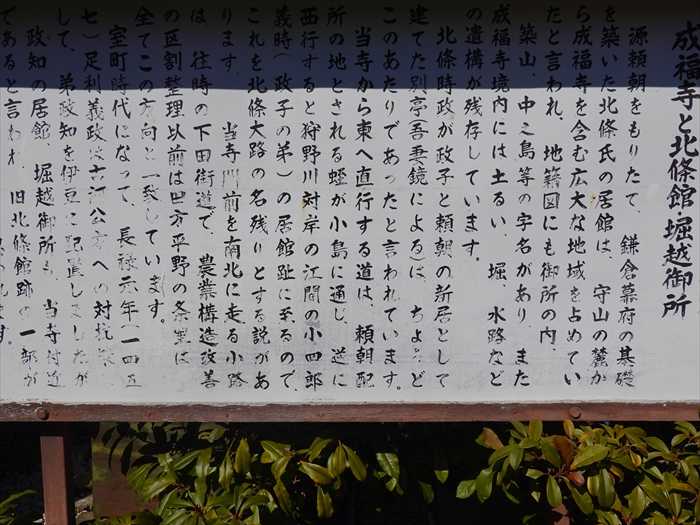 成福寺と北條館・堀越御所
源頼朝をもりたて、鎌倉幕府の基礎
を築いた北條氏の居館は、守山の麓か
ら成福寺を含む広大な地域を占めてい
たと言われ、地籍図にも御所の内、
築山、中之島等の字名があり、また
成福寺境内には土るい、堀、水路など
の遺構が残存しています。
北條時政が政子と頼朝の新居として
建てた別亭(吾妻鏡による)は、ちょうど
このあたりであったと言われています。
当寺から東へ直行する道は、頼朝配
所の地とされる蛭が小島に通じ、逆に
西行すると狩野川対岸の江間の小四郎
義時(政子の弟)の居館趾に至るので
これを北條大路の名残りとする説があ
ります。当寺門前を南北に走る小路
は、往時の下田街道で、農業構造改善
の区割整理以前は田方平野の条里は
全てこの方向と一致しています。
室町時代になって、長禄元年(一四五
七)足利義政は古河公方への対抗策と
して、弟政知を伊豆に配置しましたが
政知の居館、堀越御所も、当寺付近
であると言われ、旧北條館跡の一部が
れます。